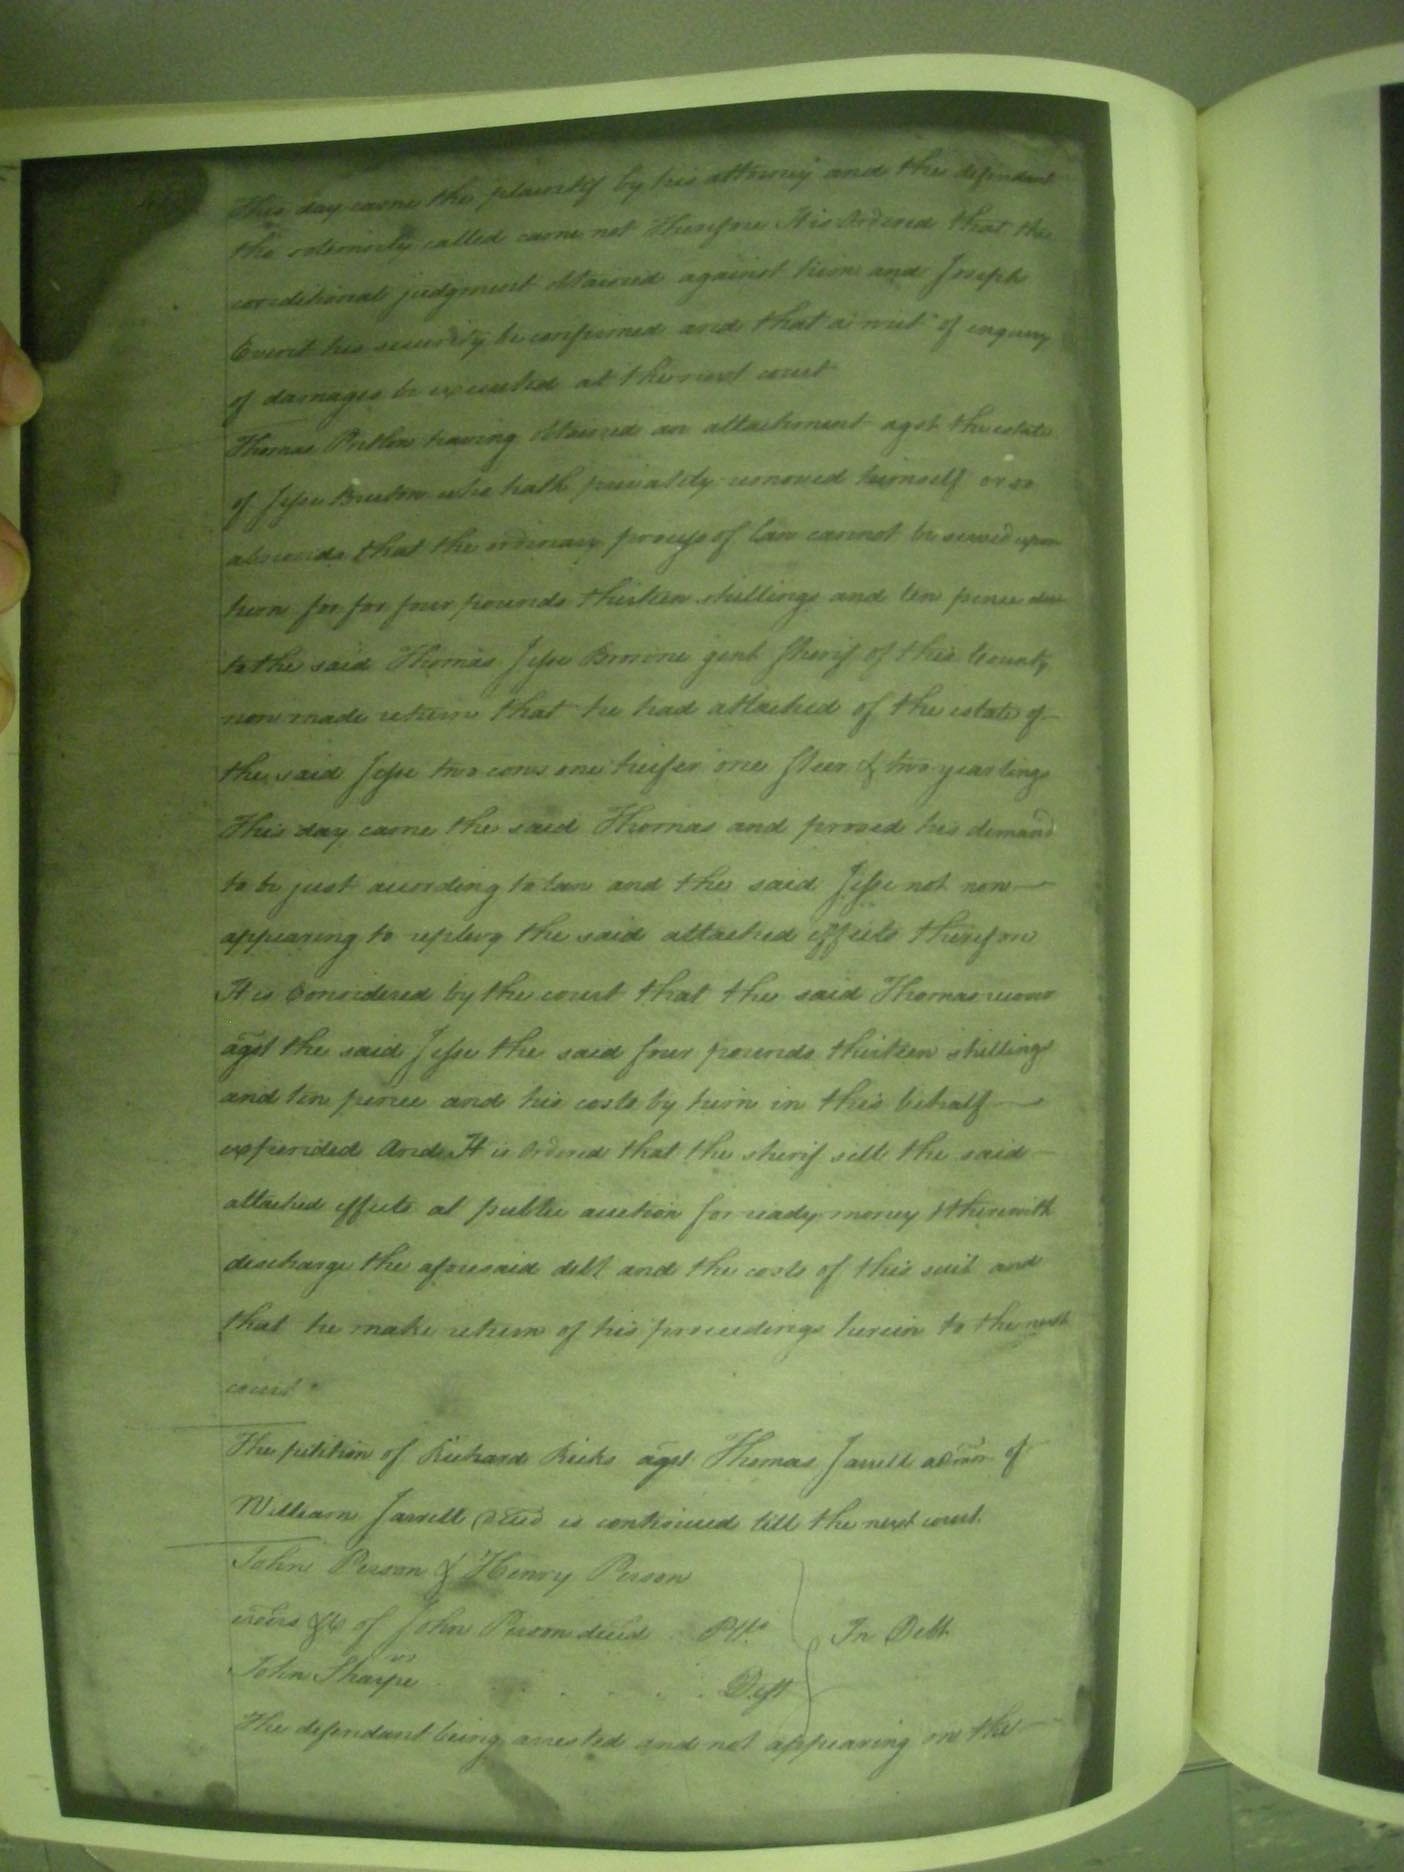 This day came the plaintif by his attorney and the defendant
tho solemnly called came not Therefore It is Ordered that the
conditional judgment obtained against him and Joseph
Everit his security be confirmed and that a writ of enquiry
of damages be executed at the next court
Thomas having obtained an attachment agst the estate
of Jesse who hath privately removed himself or so
absconds that the ordinary process of law cannot be served upon
him for for four pounds thirteen shillings and ten pence due
to the said Thomas Jesse Browne gent Sherif of this County
now made return that he had attached of the estate of
the said Jesse two cows one heifer one steer & two yearlings
This day came the said Thomas and proved his demand
to be just according to law and the said Jesse not now
appearing to replevy the said attached effects therefore
It is Considered by the court that the said Thomas recover
agst the said Jesse the said four pounds thirteen shillings
and ten pence and his costs by him in this behalf
expended And It is Ordered that the sherif sell the said
attached effects at public auction for ready money & therewith
discharge the aforesaid debt and the costs of this suit and
that he make return of his proceedings herein to the next
court
The petition of Richard Ricks agst Thomas Jarrell admr of
William Jarrell decd is continued till the next court
John Person & Henry Person
exors &c of John Person decd Plts In Debt
vs
John Sharpe Deft
The defendant being arrested and not appearing on the